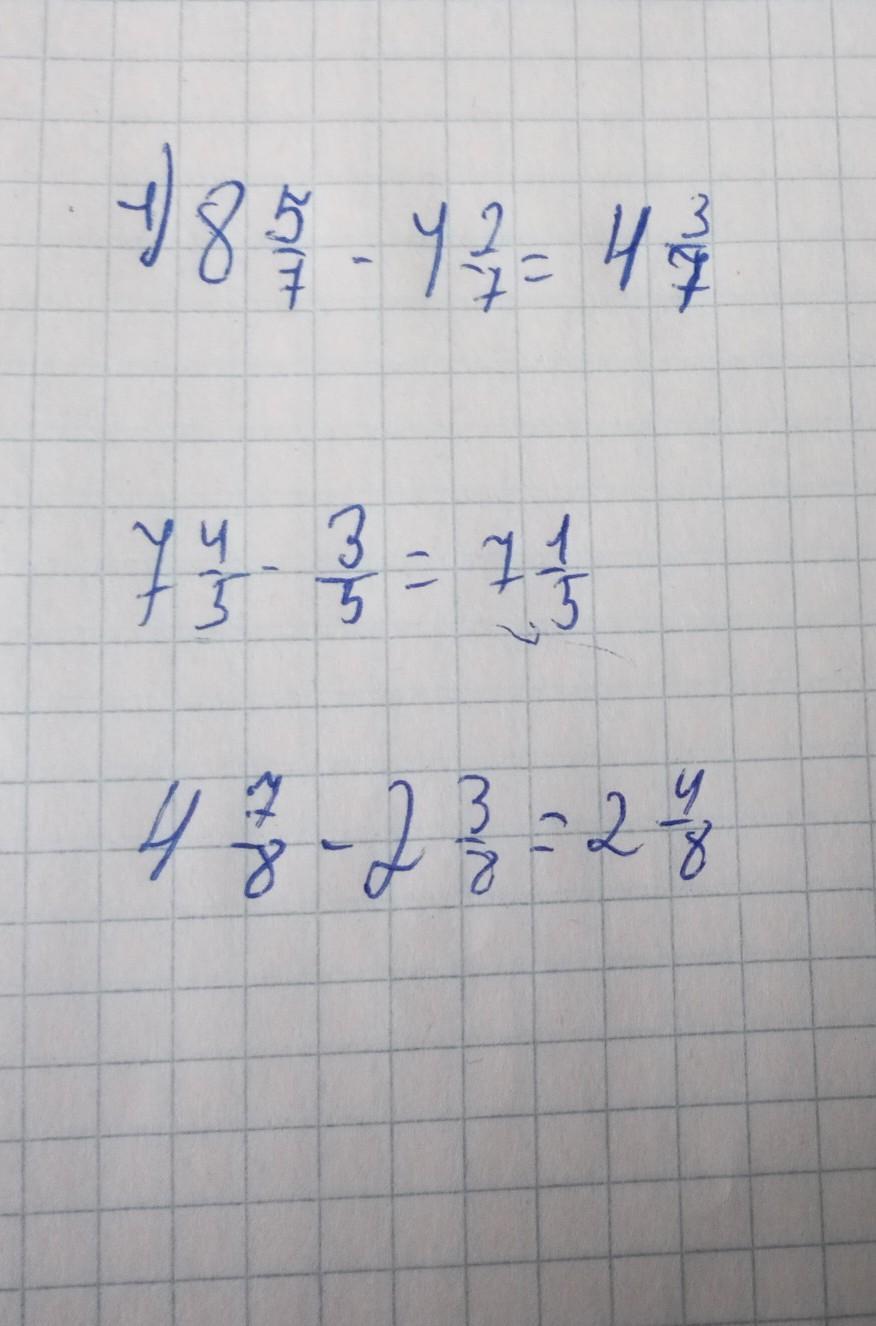 1) 8 5/7 - 4 2/7 = 4 3/7
7 4/5 - 3/5 = 7 1/5
4 7/8 - 2 3/8 = 2 4/8